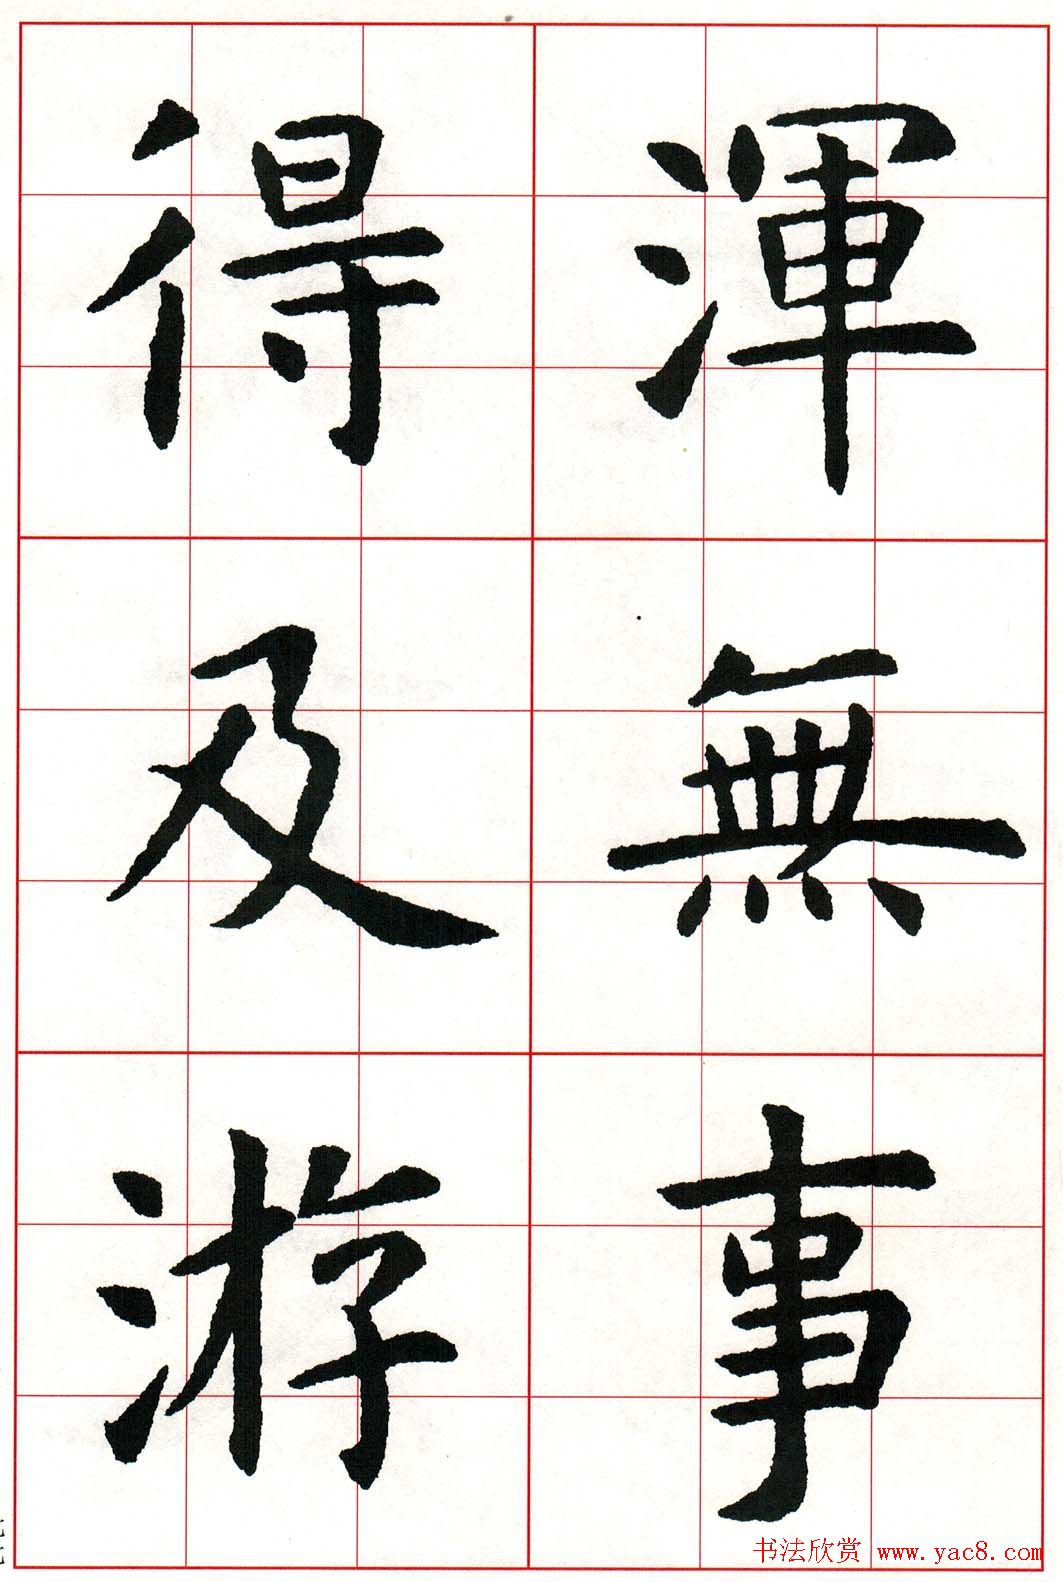 渾無事
得及游
书法欣赏 www.yac8.com